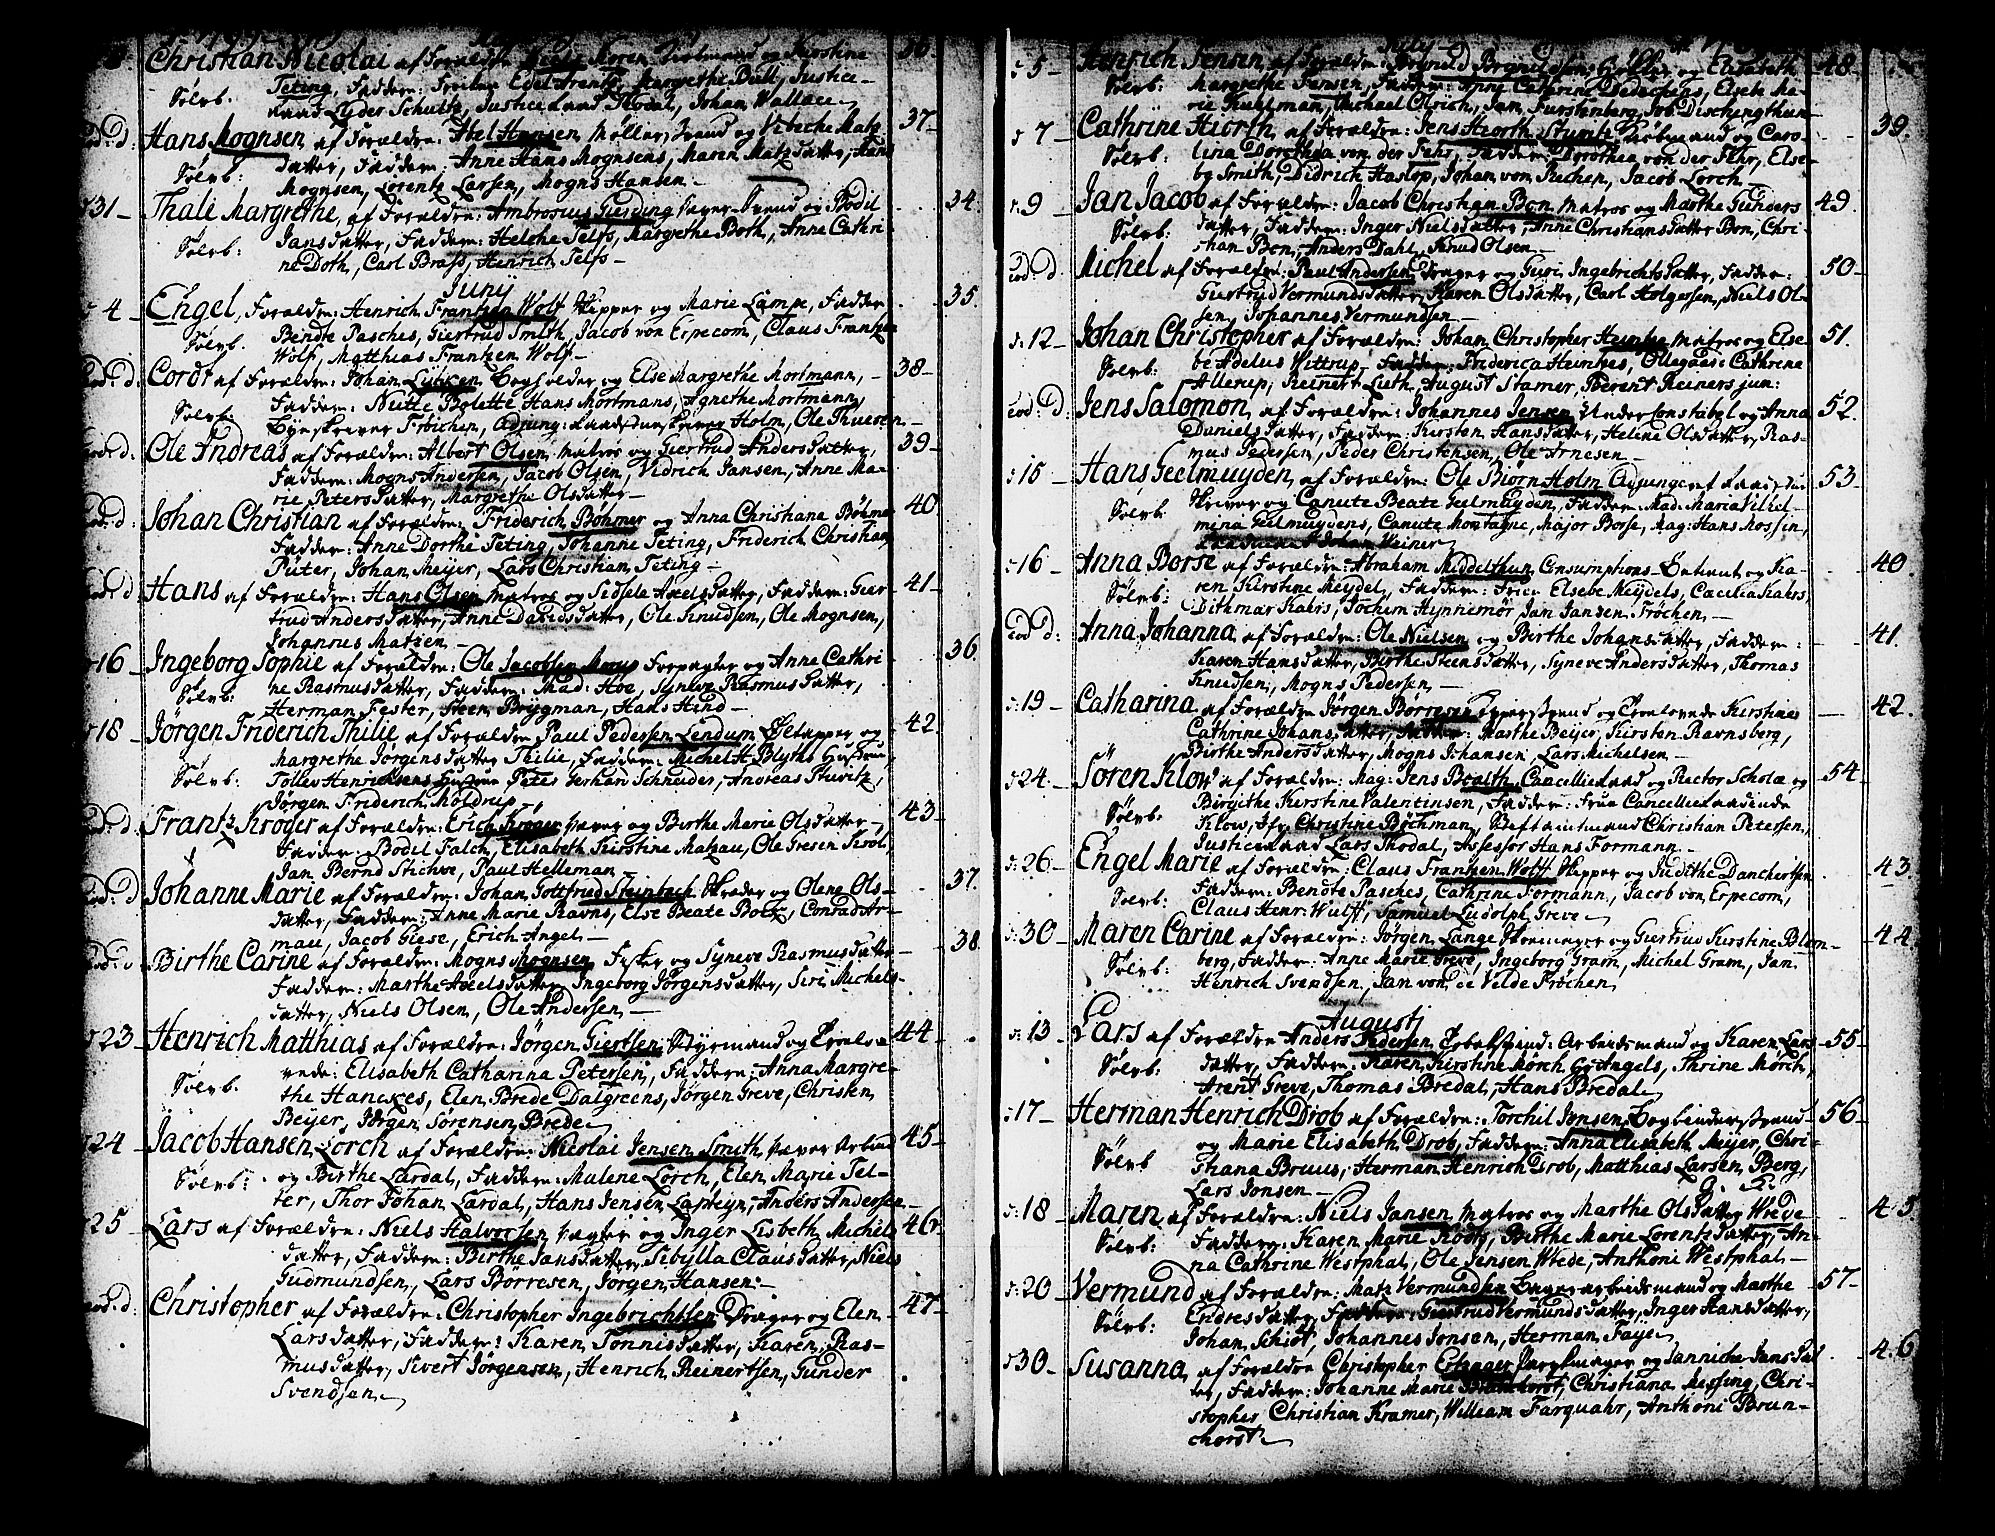 Christian Nicolai af Forældre Niels Koren og Kirstine 36
Teting, Faddern: Frøiken Edel Arentz, Margrethe Bull, Justice-
Sølvb. raad Lyder Schultz, Justiceraad Thodal, Johan Wallace
eod: d: Hans Mognsen af Forældre: Abel Hansen Møllersvend og Vibiche Matz 37-
datter, Faddern: Anne Hans Mognsens, Maren Matzdatter, Hans
Sølvb: Mognsen, Lorentz Larsen, Mogns Hansen-
31- Thale Margrethe, af Forældre: Ambrosius og Bodil 34.
Jansdatter, Faddern: Helche Telfs, Margrethe Both, Anne Cathri-
Sølvb: ne Doth, Carl Brass, Henrich Telfs-
Junij
4- Engel, Forældre: Henrich Frantzen Wolf Skipper og Marie Lampe, Fadder 35.
Bendte Pasches, Giertrud Smith, Jacob von Erpecom, Claus Frantzen
Sølvb. Wolf, Matthias Frantzen Wolf-
eod. d. Cordt af Forældre: Johan Lübken og Else Margrethe Mortmann, 38-
Sølvb: Faddern: Nille Bolette Hans Mortmans, Agnethe Mortmann,
Byeskriver Frøichen, Adjung: Holm, Ole Thuesen-
eod. d. Ole Andreas af Forældre: Albert Olsen, matros og Giertrud Andersdatter, 39-
Faddern: Mogns Andersen, Jacob Olsen, Vidrich Jansen, Anne Ma-
rie Petersdatter, Margrethe Olsdatter-
eod. d: Johan Christian af Forældre: Friderich Bøhmer og Anna Christiana Bøhmer 40
Faddern: Anne Dorthe Teting, Johanne Teting, Friderich Christian
Püter, Johan Meyer, Lars Christian Teting-
eod. d Hans af Forældre: Hans Olsen matros og Sidsele Axelsdatter, Faddern: Gier- 41-
trud Andersdatter, Anne Davidsdatter, Ole Knudsen, Ole Mognsen,
Johannes Matzen-
16- Ingeborg Sophie af Forældre: Ole Jacobsen Forpagter og Anne Cathri- 36.
Sølvb: ne Rasmusdatter, Faddern: Mad: Hoe, Syneve Rasmusdatter,
Herman Fester, Steen Brygman, Hans Hind-
18- Jørgen Friderich Thilie af Forældre Paul Pedersen Lendum Øltapper og 42
Margrethe Jørgensdatter Thilie, Faddern: Michel H Blyths Hustrue,
Sølvb: Tollev Henrichsens Hustrue Peter Gerhan Schneider, Andreas
Jørgen Friderich Møldrup
eod. d. Frantz Krøger af Forældre: Erich Krøger og Birthe Marie Olsdatter, 43-
Faddern: Bodil Falch, Elisabeth Kirstine Matzau, Ole Gresen Krol,
Jan Bernd Stichve, Paul Helleman-
eod. d Johanne Marie af Forældre: Johan Gottfried Steinbach Skræder og Olene Ols- 37.
datter, Faddern: Anne Marie Ravns, Else Beate Bock, Conrad Ar-
mau, Jacob Giese, Erich Angel-
eod. d Birthe Carine af Forældre: Mogns Mognsen Fisker og Syneve Rasmusdatter- 38
Faddern: Marthe Axelsdatter, Ingeborg Jørgensdatter, Siri Michels-
datter, Niels Olsen, Ole Andersen-
23- Henrich Matthias af Forældre: Jørgen Giertsen Styrmand og Troelo- 44-
vede: Elisabeth Catharina Petersen, Faddern: Anna Margre-
Sølvb. the Hanckes, Elen Brede Dalgreens, Jørgen Greve, Christen
Beyer, Jørgen Sørensen Brede
24- Jacob Hansen Lorch af Forældre: Nicolai Jensen Smith 45-
Sølvb: og Birthe Lardal, Faddern: Malene Lorch, Elen Marie Tel-
ter, Thor Johan Lardal, Hans Jensen Lapsteyn, Anders Andersen-
25- Lars af Forældre: Niels Halvorsen og Inger Lisbeth Michels 46-
datter, Faddern: Birthe Jansdatter, Sibylla Clausdatter, Niels
Gudmundsen, Lars Børresen, Jørgen Hansen:-
eod. d: Christopher af Forældre: Christopher Ingebrichtsen Drager og Elen 47-
Larsdatter, Faddern: Karen Tønnisdatter, Karen Ras-
musdatter, Sivert Jørgensen, Henrich Reinertsen, Gunder
Svendsen
July
5- Henrich Jensen af Forældre: og Elisabeth 48-
Sølvb: Margrethe Jansen, Faddern: Anne Cathrine Dedechens, Elsebe Ma-
rie Kuhlman, Michael Olrich, Jan Furstenberg, Job Dischengthun-
7- Cathrine Hiorth af Forældre: Jens Hiorth Kiøbmand og Caro- 39.
Sølvb. lina Dorothea von der Fehr, Faddern: Dorothea von der Fehr, Else-
be Smith, Didrich Haslop, Johan von Rechen, Jacob Lorch
9- Jan Jacob af Forældre: Jacob Christian Bøn Matros og Marthe Gunders 49.
Sølvb: datter, Faddern: Inger Nielsdatter, Anne Christiansdatter Bøn, Chri-
stian Bøn, Anders Dahl, Knud Olsen-
eod. d. Michel af Forældre: Paul Andersen, Drager og Guri Ingebrichtsdatter, Fadder: 50-
Giertrud Vermundsdatter, Karen Olsdatter, Carl Holgersen, Niels Ol-
sen, Johannes Vermundsen-
12- Johan Christopher af Forældre: Johan Christopher Heintze matros og Else- 51.
Sølvb: be Adelus Wittrup, Faddern: Friderica Heintzes, Ollegaes Cathrine
Allerup, Reinert Lieth, August Stamer, Berent Reiners jun:
eod: d. Jens Salomon, af Forældre: Johannes Jensen Underconstabel og Anna 52-
Danielsdatter, Faddern: Kirsten Hansdatter, Helene Olsdatter, Ras-
mus Pedersen, Peder Christensen, Ole Arnesen-
15- Hans Geelmuyden, af Forældre: Ole Biørn Holm Adjungeret 53-
Sølvb. Skriver og Canute Beate Geelmuyden, Faddern: Mad. Maria Vilhel-
mina Geelmuydens, Canute Montagne, Major Borse, Mag: Hans Mossin,
Johan Weiner
16- Anna Borse af Forældre: Abraham Middelthun Consumptions-Betient og Ka- 40.
Sølvb: ren Kirstine Meydel, Faddern: Frue Elsebe Meydels, Cæcilia Kahrs,
Dithmar Kahrs, Jochum Jan Jansen Frøchen-
eod d: Anna Johanna af Forældre: Ole Nielsen og Birthe Johansdatter, Faddern: 41.
Karen Hansdatter, Birthe Steensdatter, Syneve Andersdatter, Thomas
Knudsen, Mogns Pedersen-
19- Catharina af Forældre Jørgen Børresen og Troelovede Kirstine 42.
Cathrine Johansdatter, Fadder: Marthe Beyer, Kirsten Ravnsberg,
Birthe Andersdatter, Mogns Johansen, Lars Michelsen-
24- Søren Klow af Forældre: Mag: Jens Boalth, Cancellieraad og Rector Scholæ og 54-
Sølvb: Birgithe Kirstine Valentinsen, Faddern: Frue Cancelliraadinde
Klow, Jfr. Christine Bøchman, Stiftamtmand Christian Petersen,
Justiceraad Lars Thodal, Assessor Hans Formann-
26- Engel Marie af Forældre: Claus Frantzen Wolff Skipper og Judithe Danchertsen 43
Sølvb: Faddern: Bendte Pasches, Cathrine Formann, Jacob von Erpecom,
Claus Henr: Wulff, Samuel Ludolph Greve
30- Maren Carine af Forældre: Jørgen Lange og Giertrud Kirstine Blom- 44
Sølvb: berg, Faddern: Anne Marie Greve, Ingeborg Gram, Michel Gram, Jan
Henrich Svendsen, Jan von de Velde Frøchen
Augusti
13- Lars af Forældre Anders Pedersen Arbeidsmand og Karen Lars- 55-
Sølvb: datter, Faddern: Karen Kirstine Mørch Angels, Thrine Mørch,
Arent Greve, Thomas Bredal, Hans Bredal
17- Herman Henrich Drob af Forældre: Torchil Jonsen, Bogbindersvend 56-
Sølvb og Marie Elisabeth Drob, Faddern: Anna Elisabeth Meyer, Chri-
stiana Bruus, Herman Henrich Drob, Matthias Larsen Berg,
Lars Jonsen-
18- Maren, af Forældre: Niels Jansen, Matros og Marthe Olsdatter Wrede 45.
Sølvb: Faddern: Karen Marie Rod, Birthe Marie Lorentzdatter, An-
na Cathrine Westphal, Ole Jensen Wrede, Anthoni Westphal-
20- Vermund af Forældre: Matz Vermundsen og Marthe 57-
Sølvb: Endresdatter, Faddern: Giertrud Vermundsdatter, Inger Hansdatter,
Johan Schiøt, Johannes Jonsen, Herman Faye
30- Susanna, af Forældre Christopher og Jannicke Jansdat- 46
ter, Faddern: Johanne Marie Brunchorst, Christiana Messing, Chri-
stopher Christian Kramer, William Farquahr, Anthoni Brun-
chorst